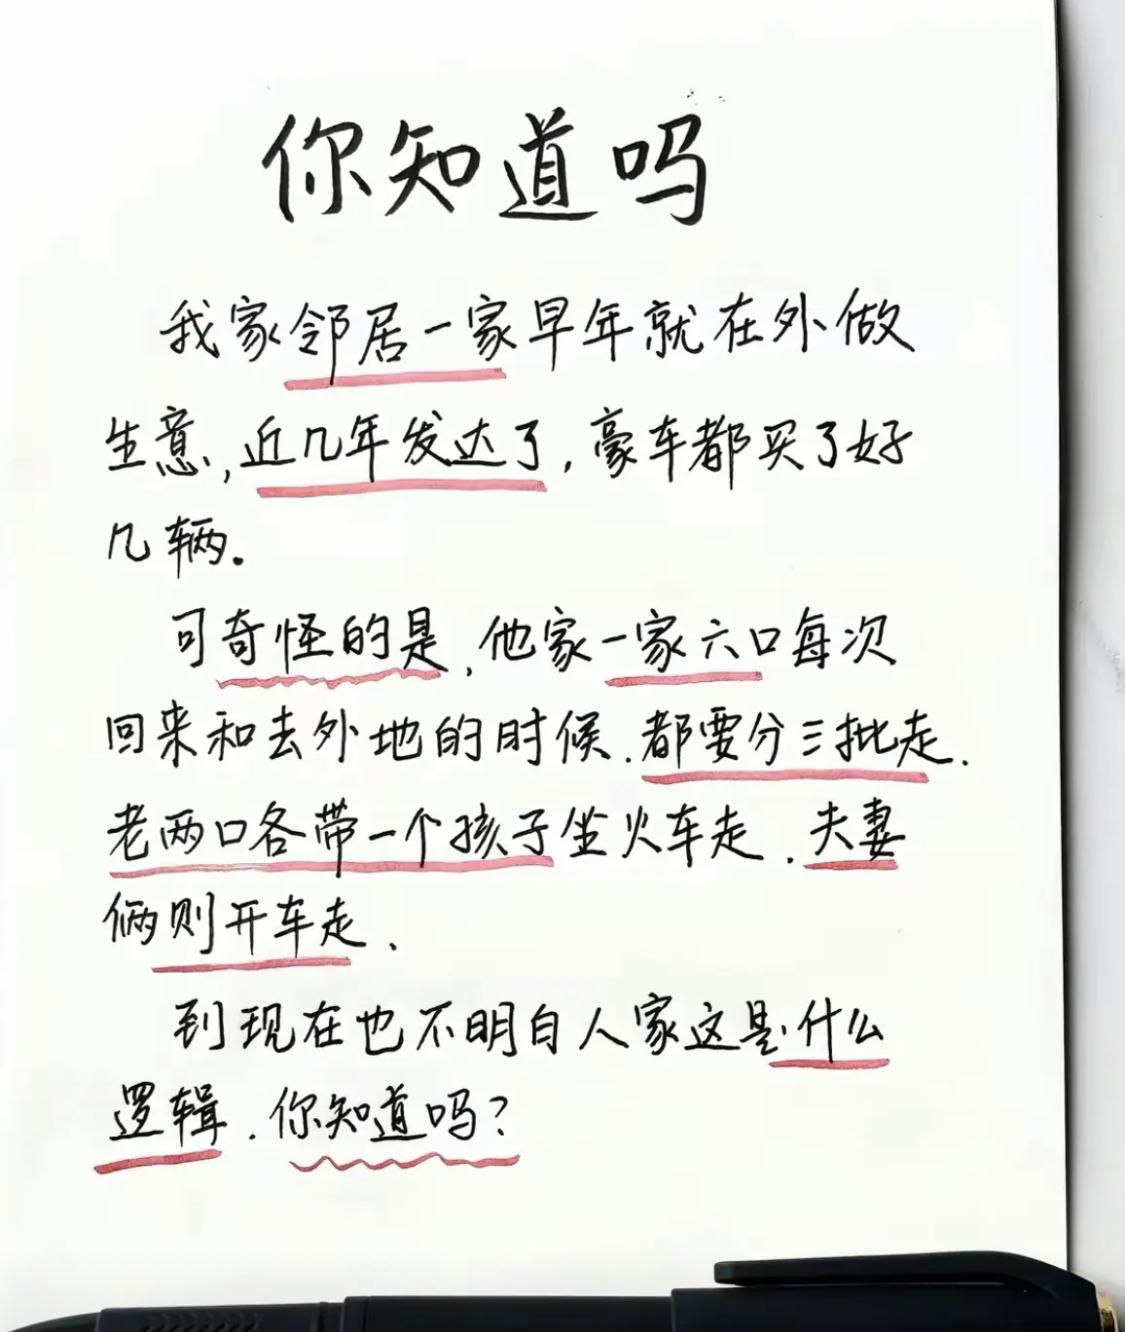 你知道吗
我家邻居一家早年就在外做
生意,近几年发达了,豪车都买了好
几辆。
可奇怪的是,他家一家六口每次
回来和去外地的时候.都要分三批走.
老两口各带一个孩子坐火车走.夫妻
俩则开车走、
到现在也不明白人家这是什么
逻辑.你知道吗?